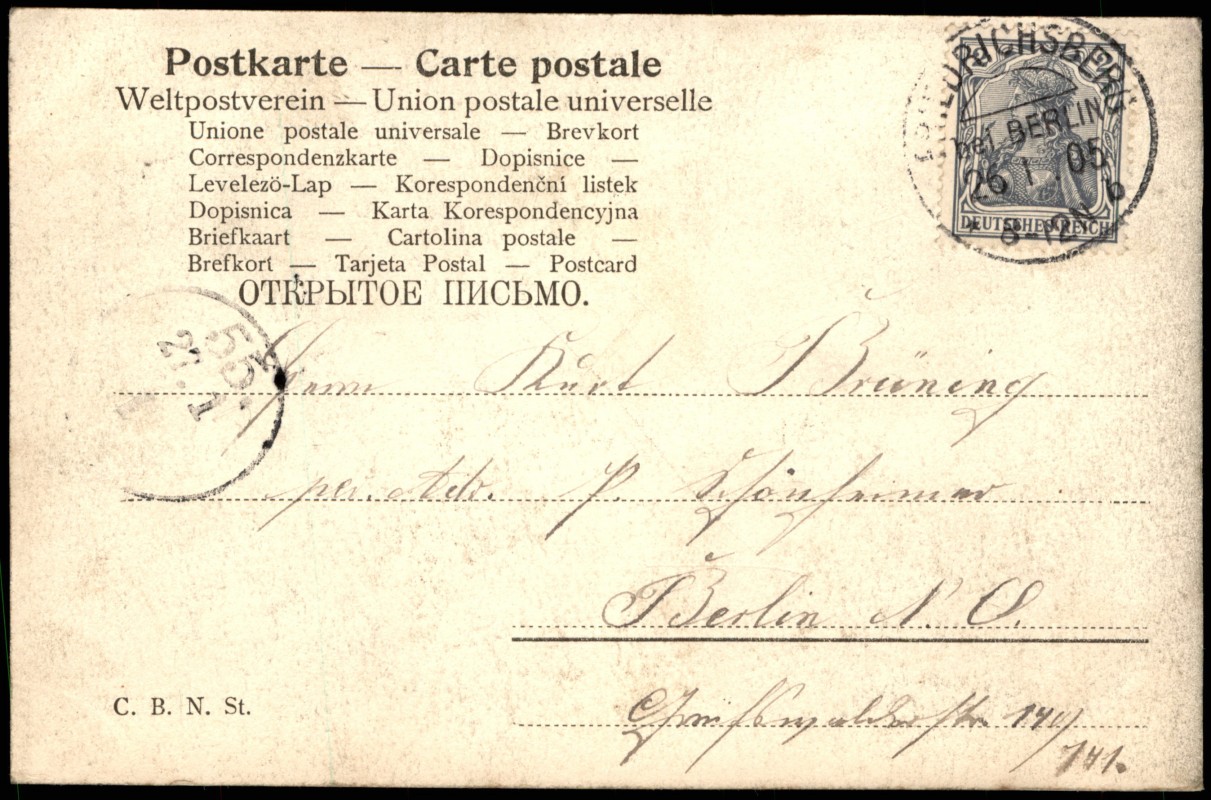 Postkarte — Carte postale
Weltpostverein — Union postale universelle
Unione postale universale — Brevkort
Correspondenzkarte — Dopisnice —
Levelezö-Lap — Korespondenční listek
Dopisnica — Karta Korespondencyjna
Briefkaart — Cartolina postale —
Brefkort — Tarjeta Postal — Postcard
ОТКРЫТОЕ ПИСЬМО.
FRIEDRICHSBERG
bei BERLIN
26 1. 05
8-12N b
DEUTSCHES REICH
55.
27. 1
Herrn Kurt Brüning
per. Adr. P.
Berlin N. O.
Greifswalderstr. 140/
141.
C. B. N. St.